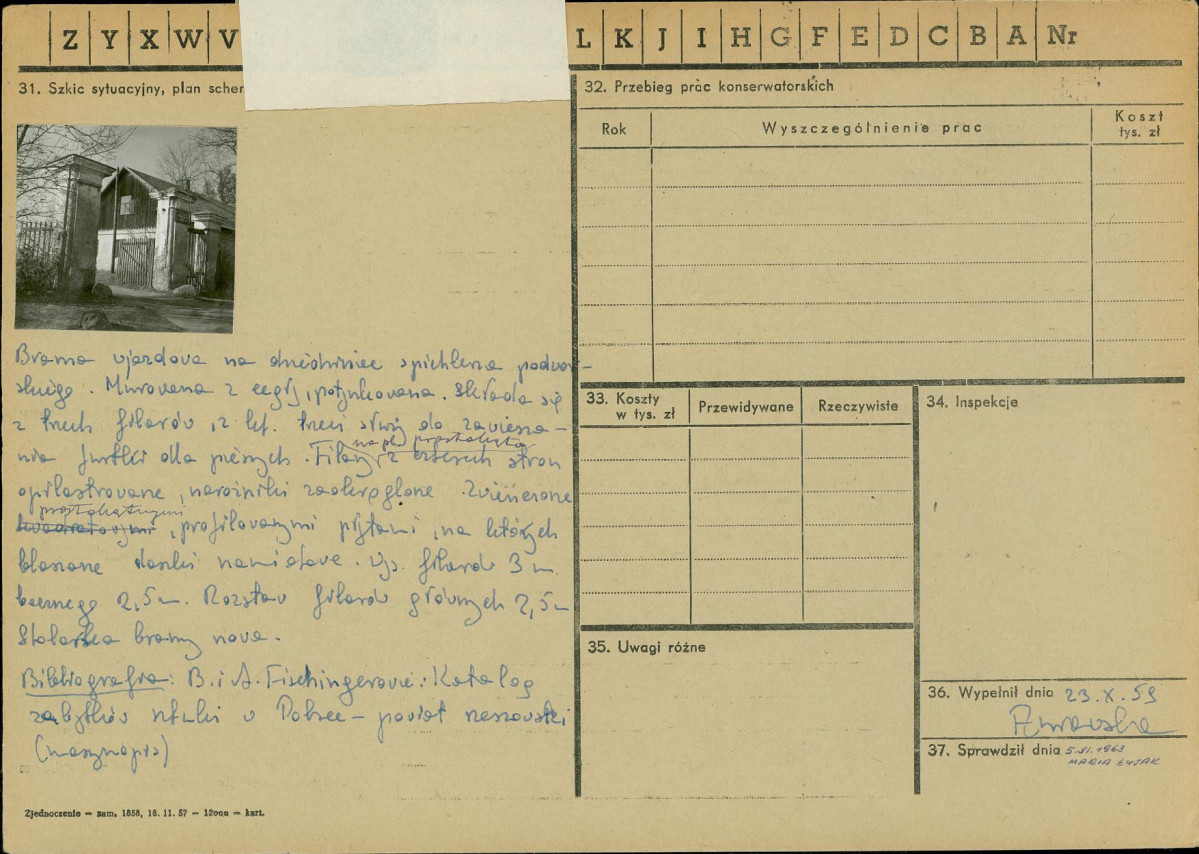 Z Y X W V L K J I H G F E D C B A Nr
31. Szkic sytuacyjny, plan schem
Brama wjazdowa na dziedziniec spichlerza podwor-
skiego. Murowana z cegły, potynkowana. Składa się
z trzech filarów, z lef. trzeci służy do zawiesza-
nia furtki dla pieszych. Filary z czterech stron
na pl. prostokąta
opilastrowane, narożniki zaokrąglone. Zwieńczone
prostokątnymi
kwadratowymi, profilowanymi płytami, na których
blaszane daszki namiotowe. Wys. filarów 3 m.
bocznego 2,5 m. Rozstaw filarów głównych 2,5 m
Stolarka bramy nowa.
Bibliografia: B. i A. Fischingerowie: Katalog
zabytków sztuki w Polsce – powiat rzeszowski
(maszynopis)
Zjednoczenie — zam. 1858, 18. 11. 57 — 12000 — kart.
32. Przebieg prac konserwatorskich
Rok Wyszczególnienie prac Koszt tys. zł
33. Koszty w tys. zł Przewidywane Rzeczywiste
34. Inspekcje
35. Uwagi różne
36. Wypełnił dnia 23.X.59
37. Sprawdził dnia 5.XI.1963
MARIA ŁUJAK